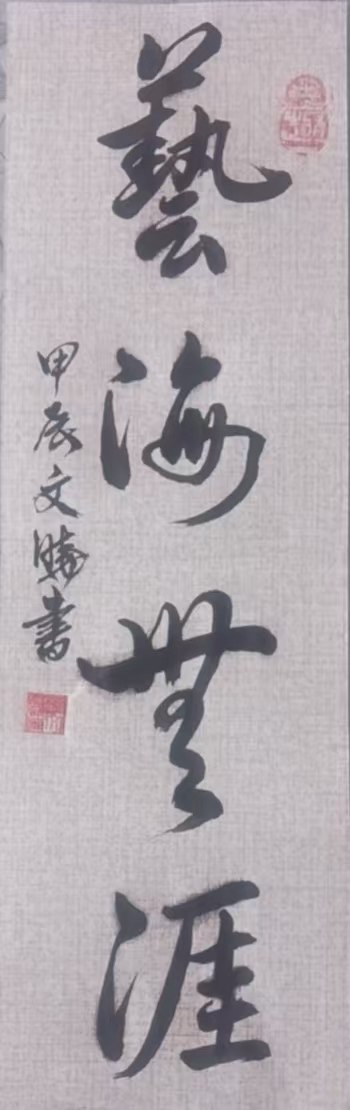 藝海無涯
甲辰文騰書